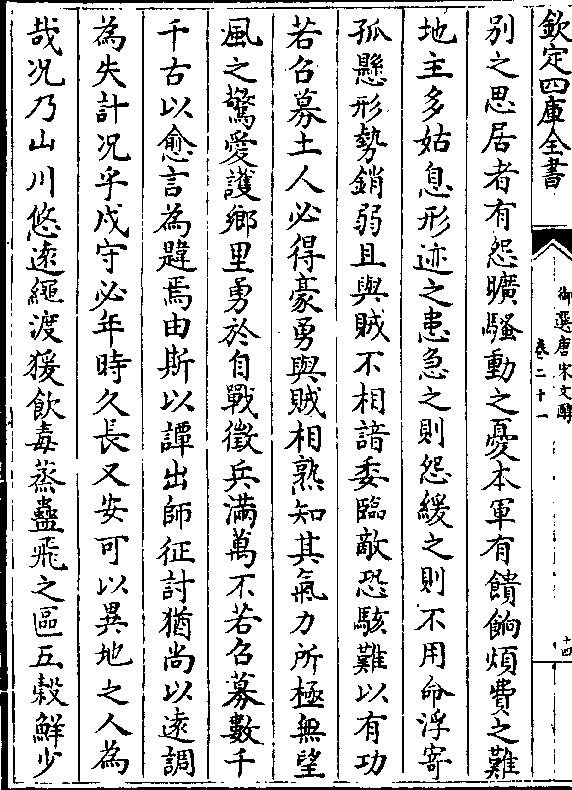 欽定四庫全書
御選唐宋文醇
卷二十一
十四
別之思居者有怨曠騷動之憂本軍有饋餉煩費之難
地主多姑息形迹之患急之則怨緩之則不用命浮寄
孤懸形勢銷弱且與賊不相諳委臨敵恐駭難以有功
若召募土人必得豪勇與賊相熟知其氣力所極無望
風之驚愛護鄉里勇於自戰徵兵滿萬不若召募數千
千古以愈言為韙焉由斯以譚出師征討猶尚以遠調
為失計况乎戍守必年時久長又安可以異地之人為
哉况乃山川悠遠繩渡猨飲毒蒸蠱飛之區五穀鮮少